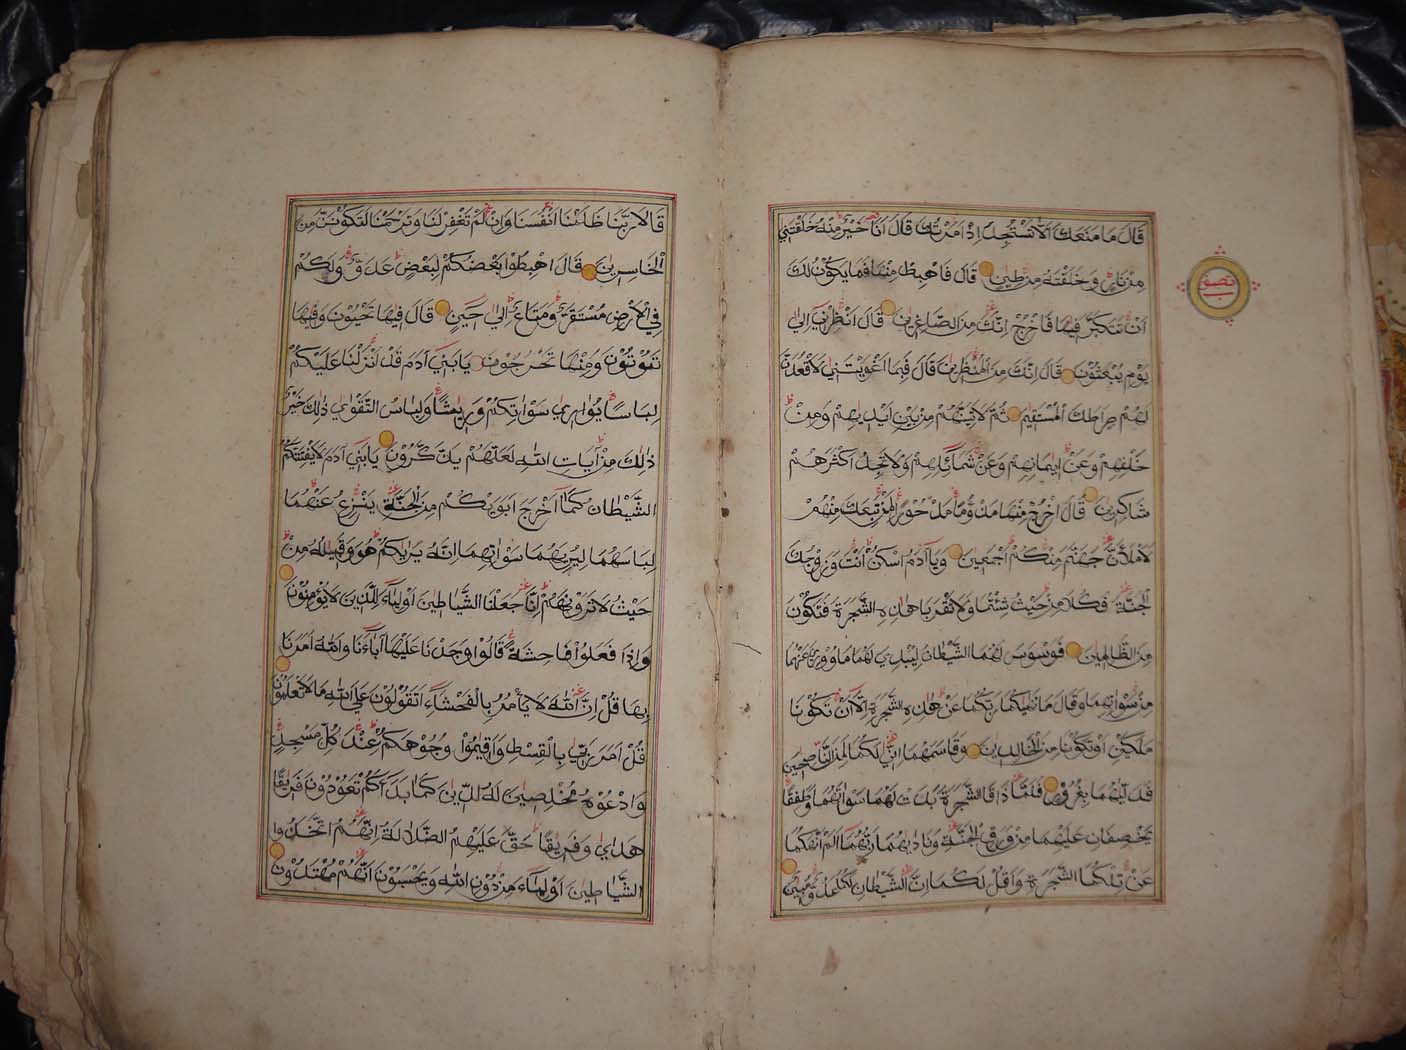 قَالَ مَا مَنَعَكَ اَلَّا تَسْجُدَ اِذْ اَمَرْتُكَ قَالَ اَنَا خَيْرٌ مِنْهُ خَلَقْتَنِي
مِنْ نَارٍ وَخَلَقْتَهُ مِنْ طِينٍ قَالَ فَاهْبِطْ مِنْهَا فَمَا يَكُوْنُ لَكَ
اَنْ تَتَكَبَّرَ فِيْهَا فَاخْرُجْ اِنَّكَ مِنَ الصَّاغِرِينَ قَالَ اَنْظِرْنِي اِلَى
يَوْمِ يُبْعَثُوْنَ قَالَ اِنَّكَ مِنَ الْمُنْظَرِينَ قَالَ فَبِمَا اَغْوَيْتَنِي لَاَقْعُدَنَّ
لَهُمْ صِرَاطَكَ الْمُسْتَقِيمَ ثُمَّ لَاٰتِيَنَّهُمْ مِنْ بَيْنِ اَيْدِيهِمْ وَمِنْ
خَلْفِهِمْ وَعَنْ اَيْمَانِهِمْ وَعَنْ شَمَائِلِهِمْ وَلَا تَجِدُ اَكْثَرَهُمْ
شَاكِرِينَ قَالَ اخْرُجْ مِنْهَا مَذْؤُمًا مَدْحُوْرًا لَمَنْ تَبِعَكَ مِنْهُمْ
لَاَمْلَاَنَّ جَهَنَّمَ مِنْكُمْ اَجْمَعِينَ وَيَا آدَمُ اسْكُنْ اَنْتَ وَزَوْجُكَ
الْجَنَّةَ فَكُلَا مِنْ حَيْثُ شِئْتُمَا وَلَا تَقْرَبَا هٰذِهِ الشَّجَرَةَ فَتَكُوْنَا
مِنَ الظَّالِمِينَ فَوَسْوَسَ لَهُمَا الشَّيْطَانُ لِيُبْدِيَ لَهُمَا مَا وُورِيَ عَنْهُمَا
مِنْ سَوْاٰتِهِمَا وَقَالَ مَا نَهٰيكُمَا رَبُّكُمَا عَنْ هٰذِهِ الشَّجَرَةِ اِلَّا اَنْ تَكُوْنَا
مَلَكَيْنِ اَوْ تَكُوْنَا مِنَ الْخَالِدِينَ وَقَاسَمَهُمَا اِنِّي لَكُمَا لَمِنَ النَّاصِحِينَ
فَدَلّٰيهُمَا بِغُرُوْرٍ فَلَمَّا ذَاقَا الشَّجَرَةَ بَدَتْ لَهُمَا سَوْاٰتُهُمَا وَطَفِقَا
يَخْصِفَانِ عَلَيْهِمَا مِنْ وَرَقِ الْجَنَّةِ وَنَادٰيهُمَا رَبُّهُمَا اَلَمْ اَنْهَكُمَا
عَنْ تِلْكُمَا الشَّجَرَةِ وَاَقُلْ لَكُمَا اِنَّ الشَّيْطَانَ لَكُمَا عَدُوٌّ مُبِينٌ
نصف
قَالَا رَبَّنَا ظَلَمْنَا اَنْفُسَنَا وَاِنْ لَمْ تَغْفِرْ لَنَا وَتَرْحَمْنَا لَنَكُوْنَنَّ مِنَ
الْخَاسِرِينَ قَالَ اهْبِطُوْا بَعْضُكُمْ لِبَعْضٍ عَدُوٌّ وَلَكُمْ
فِي الْاَرْضِ مُسْتَقَرٌّ وَمَتَاعٌ اِلَى حِينٍ قَالَ فِيْهَا تَحْيَوْنَ وَفِيْهَا
تَمُوْتُوْنَ وَمِنْهَا تُخْرَجُوْنَ يَا بَنِي آدَمَ قَدْ اَنْزَلْنَا عَلَيْكُمْ
لِبَاسًا يُوَارِي سَوْاٰتِكُمْ وَرِيشًا وَلِبَاسُ التَّقْوٰي ذٰلِكَ خَيْرٌ
ذٰلِكَ مِنْ آيَاتِ اللهِ لَعَلَّهُمْ يَذَّكَّرُوْنَ يَا بَنِي آدَمَ لَا يَفْتِنَنَّكُمُ
الشَّيْطَانُ كَمَا اَخْرَجَ اَبَوَيْكُمْ مِنَ الْجَنَّةِ يَنْزِعُ عَنْهُمَا
لِبَاسَهُمَا لِيُرِيَهُمَا سَوْاٰتِهِمَا اِنَّهُ يَرٰيكُمْ هُوَ وَقَبِيلُهُ مِنْ
حَيْثُ لَا تَرَوْنَهُمْ اِنَّا جَعَلْنَا الشَّيَاطِينَ اَوْلِيَاءَ لِلَّذِينَ لَا يُؤْمِنُوْنَ
وَاِذَا فَعَلُوْا فَاحِشَةً قَالُوْا وَجَدْنَا عَلَيْهَا آبَاءَنَا وَاللهُ اَمَرَنَا
بِهَا قُلْ اِنَّ اللهَ لَا يَأْمُرُ بِالْفَحْشَاءِ اَتَقُوْلُوْنَ عَلَى اللهِ مَا لَا تَعْلَمُوْنَ
قُلْ اَمَرَ رَبِّي بِالْقِسْطِ وَاَقِيمُوْا وُجُوْهَكُمْ عِنْدَ كُلِّ مَسْجِدٍ
وَادْعُوْهُ مُخْلِصِينَ لَهُ الدِّينَ كَمَا بَدَاَكُمْ تَعُوْدُوْنَ فَرِيقًا
هَدٰي وَفَرِيقًا حَقَّ عَلَيْهِمُ الضَّلَالَةُ اِنَّهُمُ اتَّخَذُوا
الشَّيَاطِينَ اَوْلِيَاءَ مِنْ دُوْنِ اللهِ وَيَحْسَبُوْنَ اَنَّهُمْ مُهْتَدُوْنَ